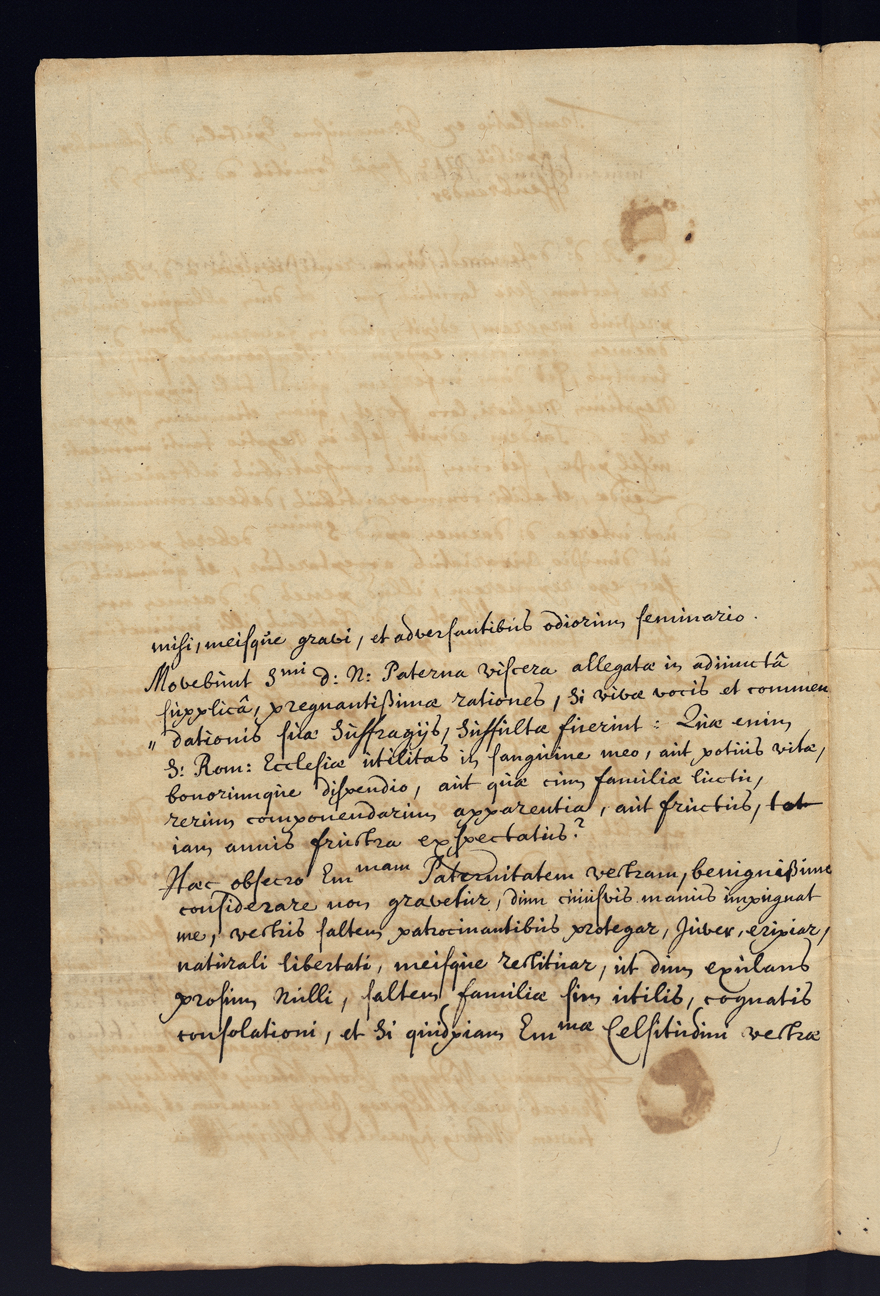 misi, meisque gravi, et adversantibus odiorum seminario.
Movebunt Smi D: N: Paterna viscera allegatæ in adiunctâ
supplicâ, pregnantissimæ rationes, si vivæ vocis et commen
" dationis suæ suffragijs, suffultæ fuerint: Quæ enim
S: Rom: Ecclesiæ utilitas in sanguine meo, aut potius vitæ,
bonorumque dispendio, aut quæ cum familiæ luctu,
rerum componendarum apparentia, aut fructus, tot
iam annis frustra exspectatus?
Hæc obsecro Emmam Paternitatem vestram, benignissime
considerare non gravetur, dum cuiusvis manus impugnat
me, vestris saltem patrocinantibus protegar, Juver, eripiar,
naturali libertati, meisque restituar, ut dum exulans
prosum Nulli, saltem familiæ sim utilis, cognatis
consolationi, et si quidpiam Emmæ Celsitudini vestræ